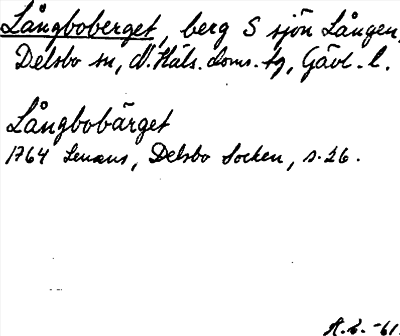 Långboberget, berg S sjön Lången,
Delsbo sn, N. Häls. doms. tg, Gävl. l.
Långbobärget
1764 Lenæus, Delsbo Socken, s. 26.
-61.